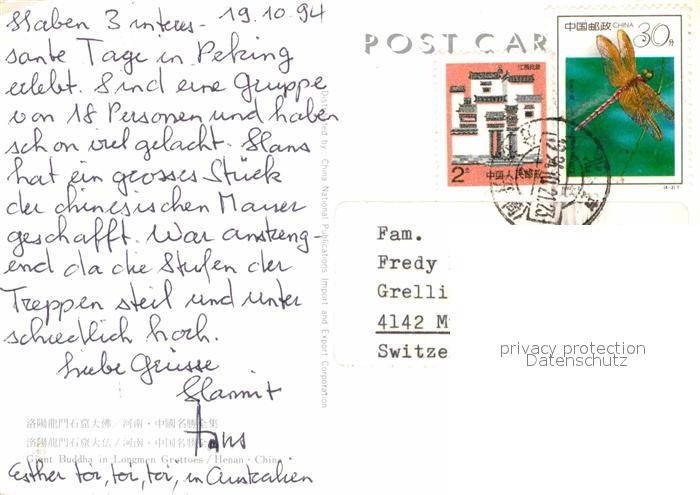 Haben 3 interes- 19.10.94
sante Tage in Peking
erlebt. Sind eine Gruppe
von 18 Personen und haben
schon viel gelacht. Hans
hat ein grosses Stück
der chinesischen Mauer
geschafft. War anstreng-
end da die Stufen der
Treppen steil und unter
schiedlich hoch.
Liebe Grüsse
Hanni +
Hans
洛陽龍門石窟大佛/河南·中國名勝全集
洛陽龍門石窟大仏/河南·中国名勝全集
Giant Buddha in Longmen Grottoes/Henan·China
Esther toi, toi, toi, in Australien
Distributed by China National Publications Import and Export Corporation
POST CAR
江苏民居
2分
中国人民邮政
中国邮政 CHINA
30分
Fam.
Fredy
Grelli
4142 M
Switze
privacy protection
Datenschutz